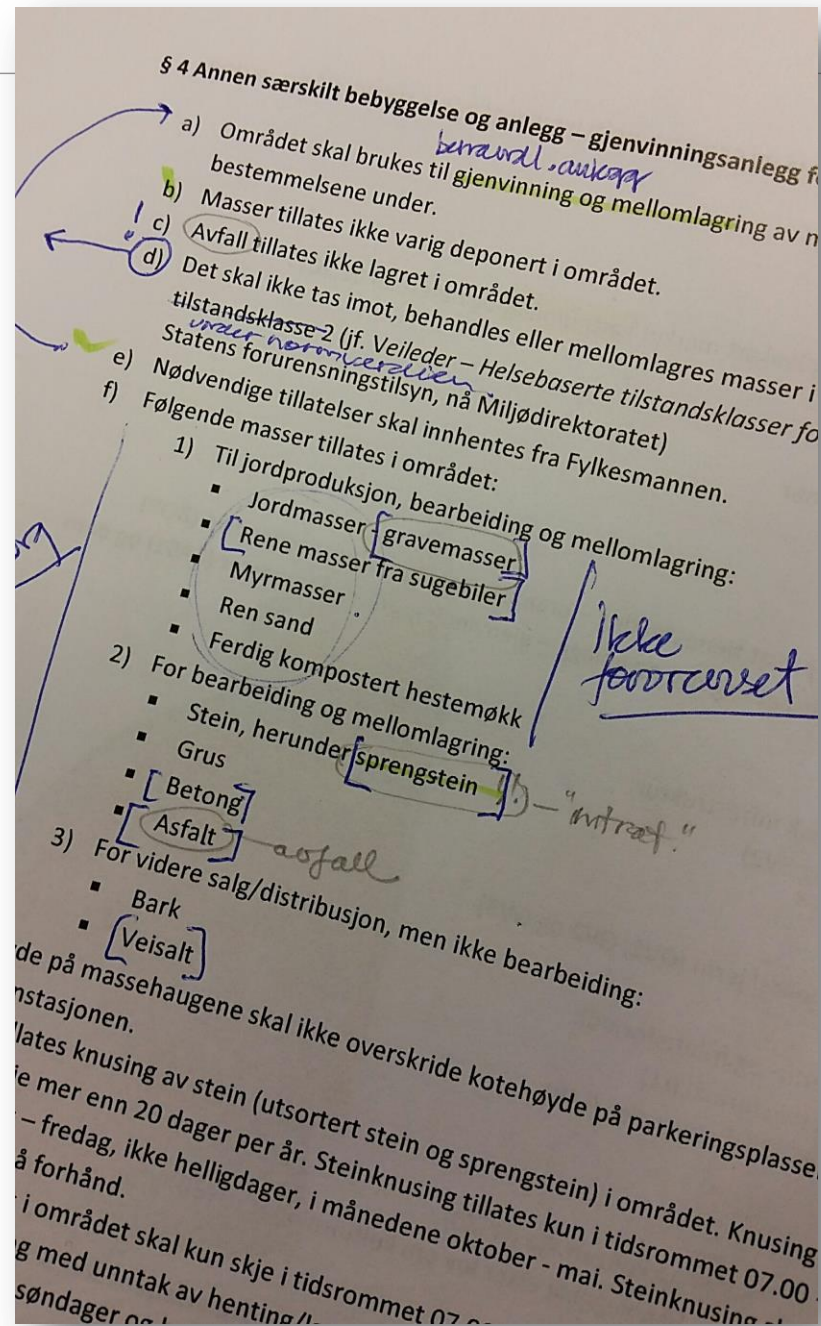 § 4 Annen særskilt bebyggelse og anlegg – gjenvinningsanlegg f
a) Området skal brukes til gjenvinning og mellomlagring av m
bestemmelsene under.
b) Masser tillates ikke varig deponert i området.
! c) Avfall tillates ikke lagret i området.
d) Det skal ikke tas imot, behandles eller mellomlagres masser i
tilstandsklasse 2 (jf. Veileder – Helsebaserte tilstandsklasser fo
under normverdien
Statens forurensningstilsyn, nå Miljødirektoratet)
e) Nødvendige tillatelser skal innhentes fra Fylkesmannen.
f) Følgende masser tillates i området:
1) Til jordproduksjon, bearbeiding og mellomlagring:
▪ Jordmasser - [gravemasser]
▪ [Rene masser fra sugebiler]
▪ Myrmasser
▪ Ren sand
▪ Ferdig kompostert hestemøkk
ikke
forurenset
2) For bearbeiding og mellomlagring:
▪ Stein, herunder [sprengstein]
▪ Grus
▪ [Betong]
▪ [Asfalt] - avfall
3) For videre salg/distribusjon, men ikke bearbeiding:
▪ Bark
▪ [Veisalt]
de på massehaugene skal ikke overskride kotehøyde på parkeringsplasse
nstasjonen.
llates knusing av stein (utsortert stein og sprengstein) i området. Knusing
je mer enn 20 dager per år. Steinknusing tillates kun i tidsrommet 07.00 -
– fredag, ikke helligdager, i månedene oktober - mai. Steinknusing
å forhånd.
i området skal kun skje i tidsrommet 07
g med unntak av henting/
søndager og